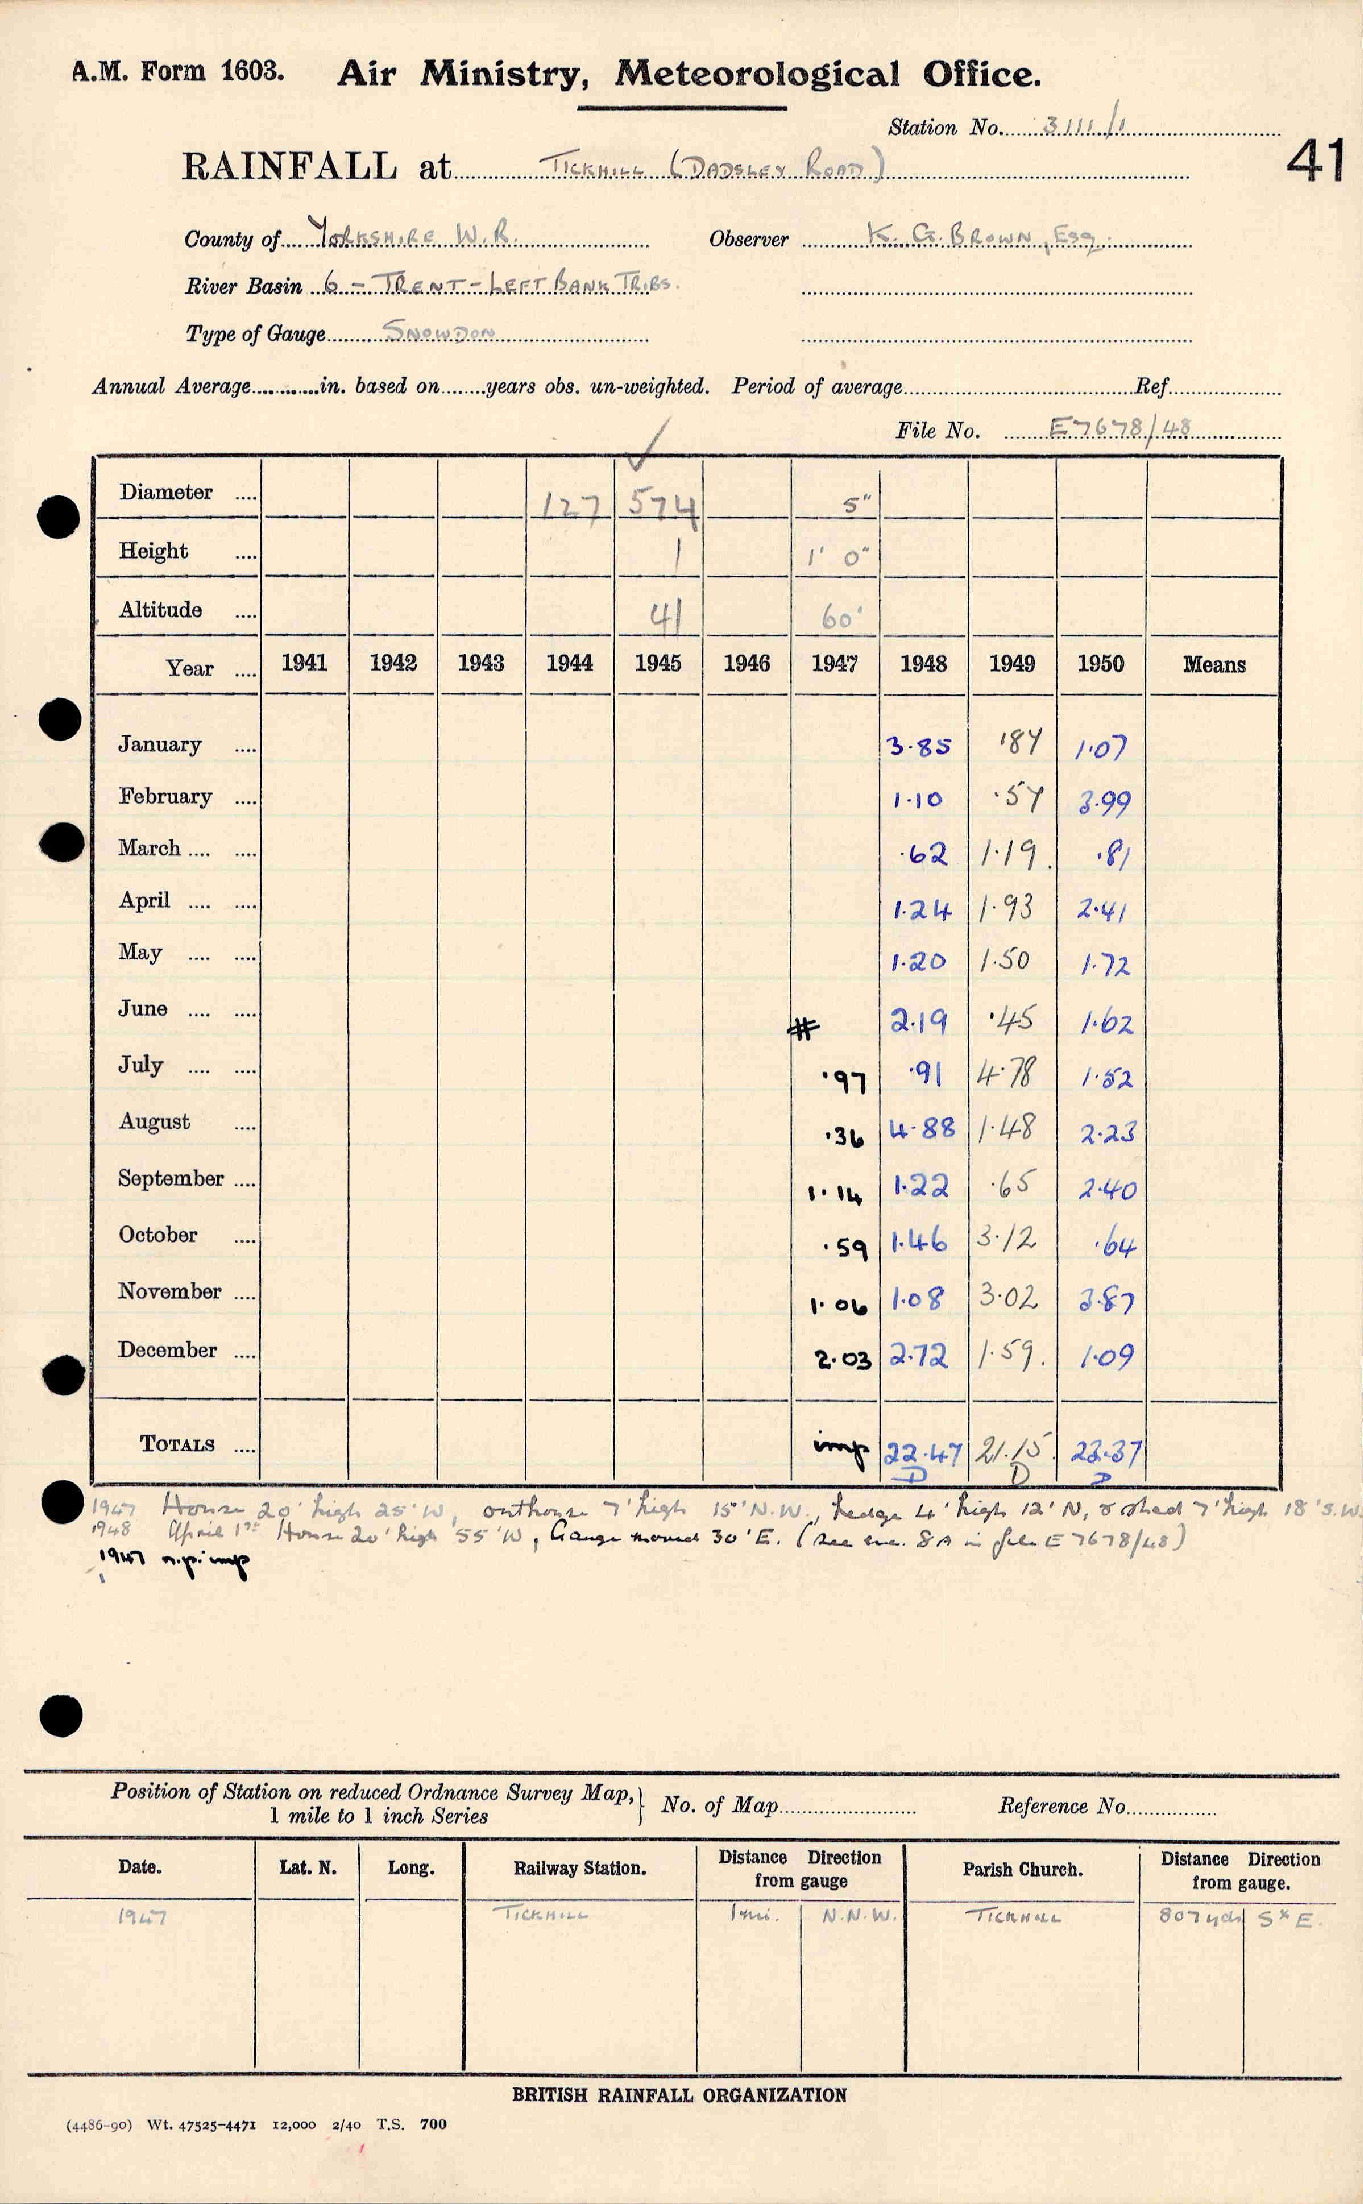 A.M. Form 1603. Air Ministry, Meteorological Office.
Station No. 3111/1
41
RAINFALL at TICKHILL (DADSLEY ROAD)
County of YORKSHIRE W.R. Observer K. G. BROWN, ESQ.
River Basin 6 - TRENT - LEFT BANK TRIBS.
Type of Gauge SNOWDON
Annual Average in. based on years obs. un-weighted. Period of average Ref.
File No. E7678/48
Diameter 127 574 5"
Height 1 1' 0"
Altitude 41 60'
Year 1941 1942 1943 1944 1945 1946 1947 1948 1949 1950 Means
January 3.85 .87 1.07
February 1.10 .57 3.99
March .62 1.19 .81
April 1.24 1.93 2.41
May 1.20 1.50 1.72
June # 2.19 .45 1.62
July .97 .91 4.78 1.52
August .36 4.88 1.48 2.23
September 1.14 1.22 .65 2.40
October .59 1.46 3.12 .64
November 1.06 1.08 3.02 3.87
December 2.03 2.72 1.59 1.09
TOTALS imp 22.47 21.15 23.37
D D D
1947 House 20' high 25' W, outhouse 7' high 15' N.W., hedge 4' high 12' N, & shed 7' high 18' S.W.
1948 April 1st House 20' high 55' W, Gauge moved 30' E. (see enc. 8A in file E7678/48)
1947 n.p. imp
Position of Station on reduced Ordnance Survey Map, 1 mile to 1 inch Series } No. of Map Reference No.
Date. Lat. N. Long. Railway Station. Distance Direction from gauge Parish Church. Distance Direction from gauge.
1947 TICKHILL 1 mi. N.N.W. TICKHILL 807 yds S x E.
BRITISH RAINFALL ORGANIZATION
(4486-90) Wt. 47525-4471 12,000 2/40 T.S. 700